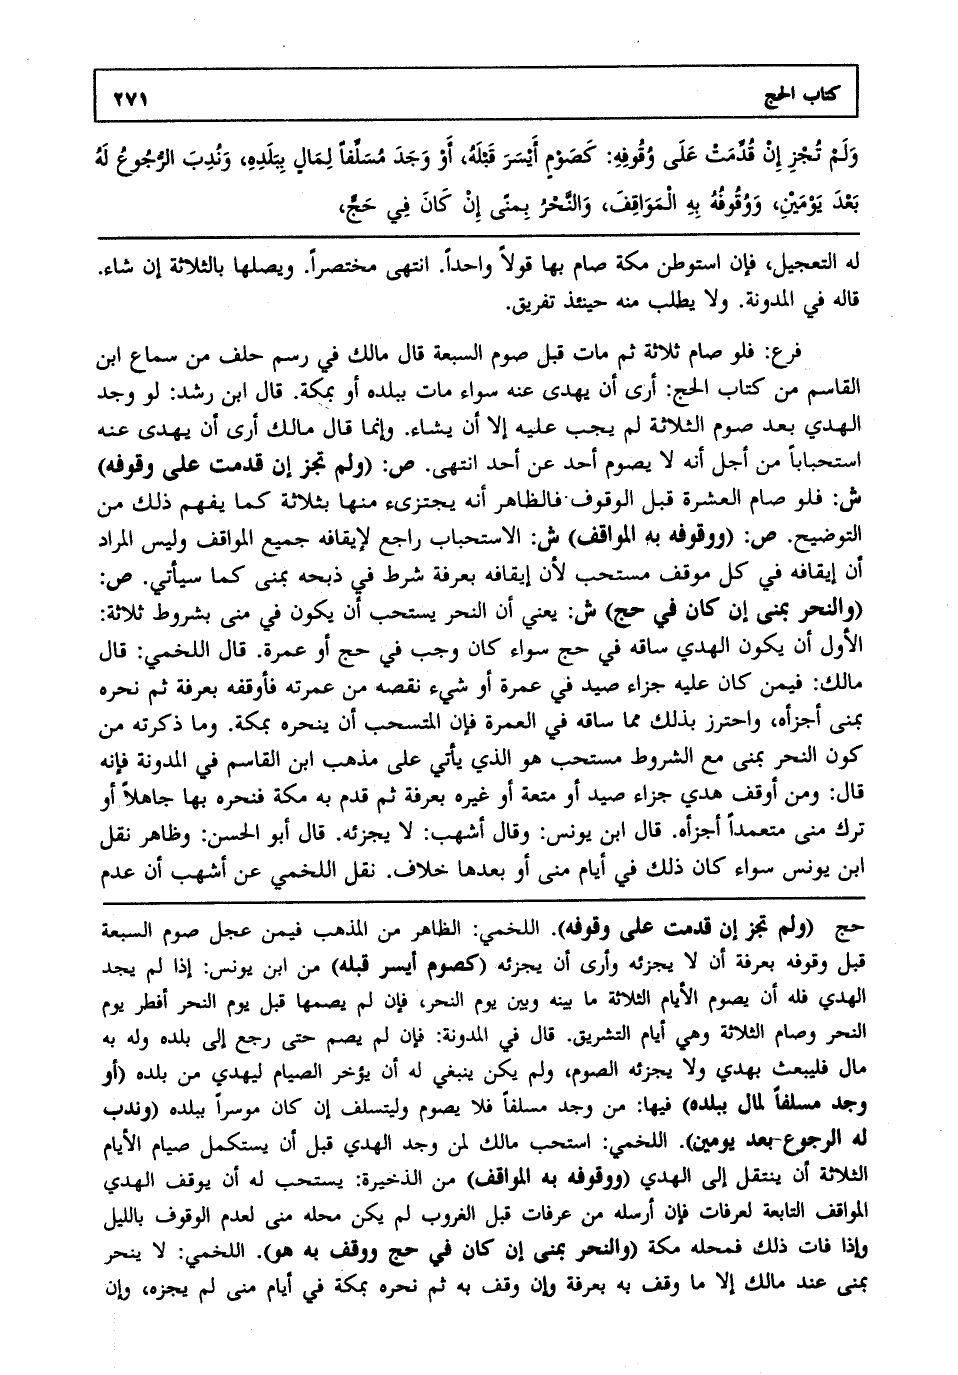 كتاب الحج ٢٧١
وَلَمْ تُجْزِ إِنْ قُدِّمَتْ عَلَى وُقُوفِهِ: كَصَوْمٍ أَيْسَرَ قَبْلَهُ، أَوْ وَجَدَ مُسَلِّفاً لِمَالٍ بِبَلَدِهِ، وَنُدِبَ الرُّجُوعُ لَهُ
بَعْدَ يَوْمَيْنِ، وَوُقُوفُهُ بِهِ الْمَوَاقِفَ، وَالنَّحْرُ بِمنًى إِنْ كَانَ فِي حَجٍّ،
له التعجيل، فإن استوطن مكة صام بها قولاً واحداً. انتهى مختصراً. ويصلها بالثلاثة إن شاء.
قاله في المدونة. ولا يطلب منه حينئذ تفريق.
فرع: فلو صام ثلاثة ثم مات قبل صوم السبعة قال مالك في رسم حلف من سماع ابن
القاسم من كتاب الحج: أرى أن يهدى عنه سواء مات ببلده أو بمكة. قال ابن رشد: لو وجد
الهدي بعد صوم الثلاثة لم يجب عليه إلا أن يشاء. وإنما قال مالك أرى أن يهدى عنه
استحباباً من أجل أنه لا يصوم أحد عن أحد انتهى. ص: (ولم تجز إن قدمت على وقوفه)
ش: فلو صام العشرة قبل الوقوف فالظاهر أنه يجتزىء منها بثلاثة كما يفهم ذلك من
التوضيح. ص: (ووقوفه به المواقف) ش: الاستحباب راجع لإيقافه جميع المواقف وليس المراد
أن إيقافه في كل موقف مستحب لأن إيقافه بعرفة شرط في ذبحه بمنى كما سيأتي. ص:
(والنحر بمنى إن كان في حج) ش: يعني أن النحر يستحب أن يكون في منى بشروط ثلاثة:
الأول أن يكون الهدي ساقه في حج سواء كان وجب في حج أو عمرة. قال اللخمي: قال
مالك: فيمن كان عليه جزاء صيد في عمرة أو شيء نقصه من عمرته فأوقفه بعرفة ثم نحره
بمنى أجزأه، واحترز بذلك مما ساقه في العمرة فإن المتسحب أن ينحره بمكة. وما ذكرته من
كون النحر بمنى مع الشروط مستحب هو الذي يأتي على مذهب ابن القاسم في المدونة فإنه
قال: ومن أوقف هدي جزاء صيد أو متعة أو غيره بعرفة ثم قدم به مكة فنحره بها جاهلاً أو
ترك منى متعمداً أجزأه. قال ابن يونس: وقال أشهب: لا يجزئه. قال أبو الحسن: وظاهر نقل
ابن يونس سواء كان ذلك في أيام منى أو بعدها خلاف. نقل اللخمي عن أشهب أن عدم
حج (ولم تجز إن قدمت على وقوفه). اللخمي: الظاهر من المذهب فيمن عجل صوم السبعة
قبل وقوفه بعرفة أن لا يجزئه وأرى أن يجزئه (كصوم أيسر قبله) من ابن يونس: إذا لم يجد
الهدي فله أن يصوم الأيام الثلاثة ما بينه وبين يوم النحر، فإن لم يصمها قبل يوم النحر أفطر يوم
النحر وصام الثلاثة وهي أيام التشريق. قال في المدونة: فإن لم يصم حتى رجع إلى بلده وله به
مال فليبعث بهدي ولا يجزئه الصوم، ولم يكن ينبغي له أن يؤخر الصيام ليهدي من بلده (أو
وجد مسلفاً لمال ببلده) فيها: من وجد مسلفاً فلا يصوم وليتسلف إن كان موسراً ببلده (وندب
له الرجوع بعد يومين). اللخمي: استحب مالك لمن وجد الهدي قبل أن يستكمل صيام الأيام
الثلاثة أن ينتقل إلى الهدي (ووقوفه به المواقف) من الذخيرة: يستحب له أن يوقف الهدي
المواقف التابعة لعرفات فإن أرسله من عرفات قبل الغروب لم يكن محله منى لعدم الوقوف بالليل
وإذا فات ذلك فمحله مكة (والنحر بمنى إن كان في حج ووقف به هو). اللخمي: لا ينحر
بمنى عند مالك إلا ما وقف به بعرفة وإن وقف به ثم نحره بمكة في أيام منى لم يجزه، وإن